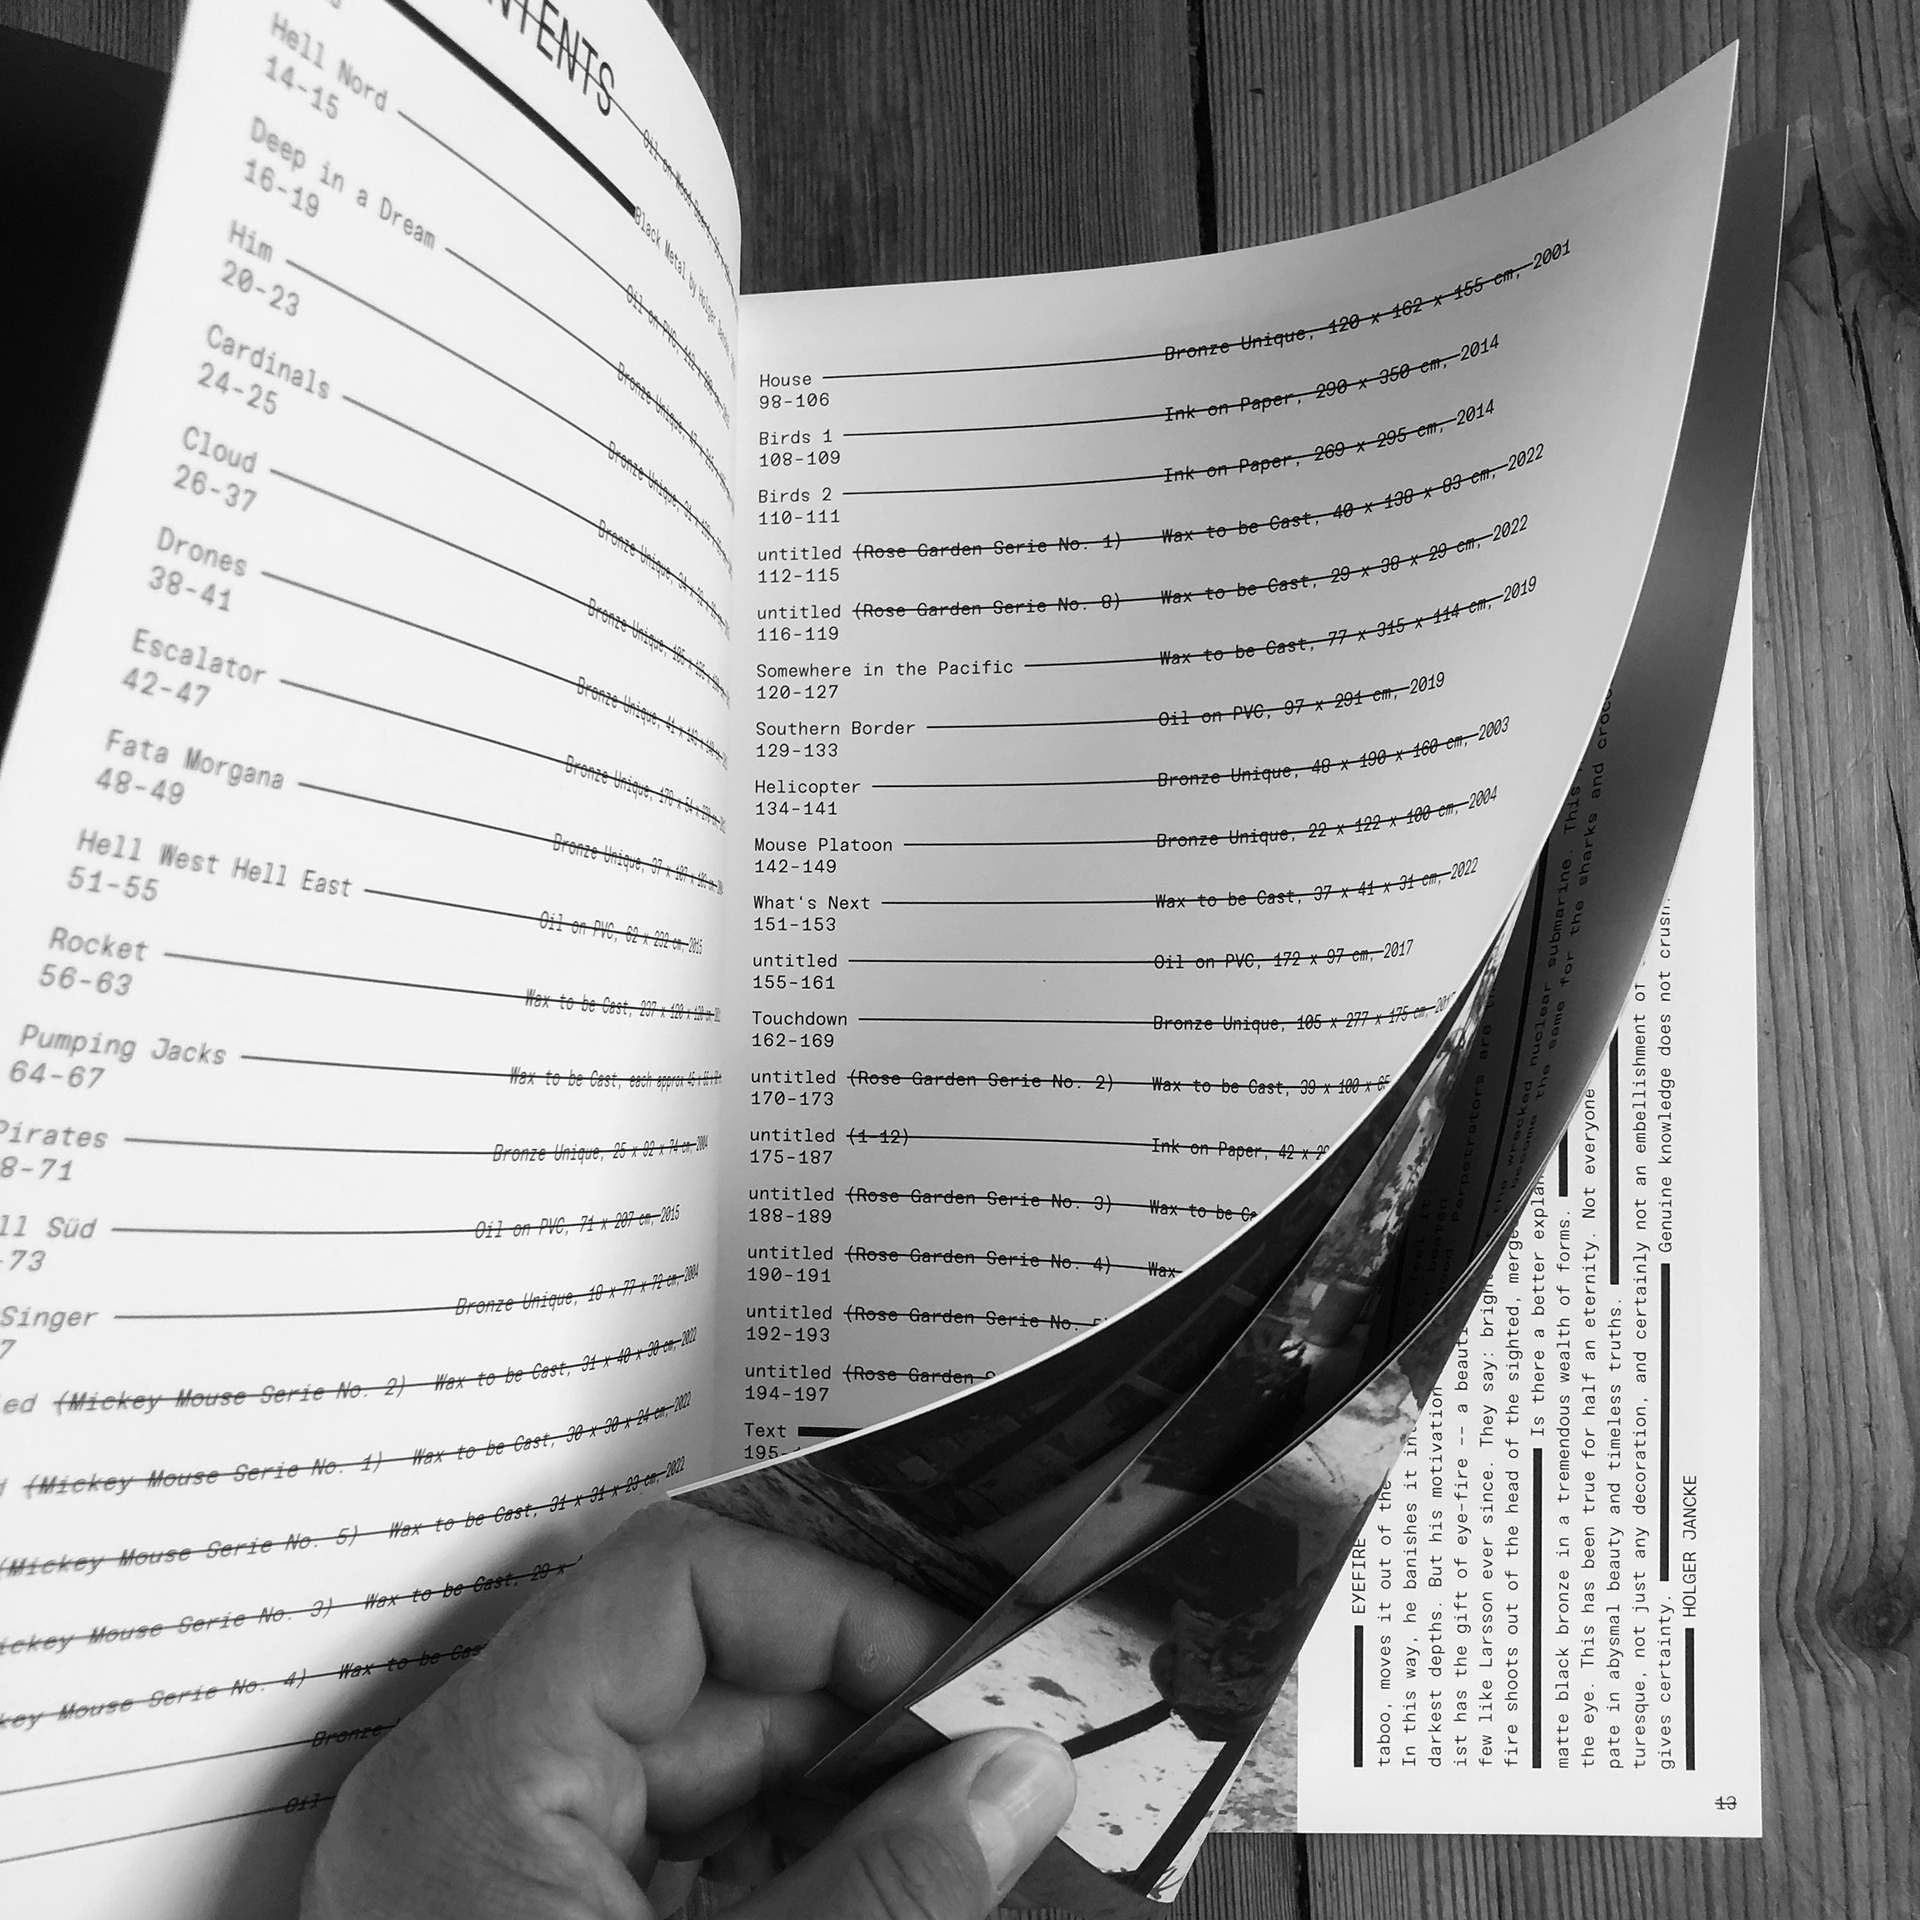 Hell Nord Oil on Wood
14-15
Black Metal by Holger
Deep in a Dream Oil on PVC, 112 x
16-19
Him Bronze Unique,
20-23
Cardinals Bronze Unique,
24-25
Cloud Bronze Unique,
26-37
Drones Bronze Unique,
38-41
Escalator Bronze Unique, 41 x
42-47
Fata Morgana Bronze Unique, 170 x 54 x
48-49
Hell West Hell East Bronze Unique, 37 x 107 x
51-55
Rocket Oil on PVC, 62 x 232 cm, 2015
56-63
Pumping Jacks Wax to be Cast, 237 x 120 x 120 cm,
64-67
Wax to be Cast, each approx
Pirates Bronze Unique, 25 x 92 x 74 cm, 2004
8-71
ll Süd Oil on PVC, 71 x 207 cm, 2015
-73
Singer Bronze Unique, 18 x 77 x 72 cm, 2004
7
ed (Mickey Mouse Serie No. 2) Wax to be Cast, 31 x 40 x 30 cm, 2022
d (Mickey Mouse Serie No. 1) Wax to be Cast, 30 x 30 x 24 cm, 2022
(Mickey Mouse Serie No. 5) Wax to be Cast, 31 x 31 x 23 cm, 2022
ickey Mouse Serie No. 3) Wax to be Cast, 29 x
key Mouse Serie No. 4) Wax to be Cas
Bronze
Oil
House Bronze Unique, 120 x 162 x 155 cm, 2001
98-106
Birds 1 Ink on Paper, 290 x 350 cm, 2014
108-109
Birds 2 Ink on Paper, 269 x 295 cm, 2014
110-111
untitled (Rose Garden Serie No. 1) Wax to be Cast, 40 x 138 x 83 cm, 2022
112-115
untitled (Rose Garden Serie No. 8) Wax to be Cast, 29 x 38 x 29 cm, 2022
116-119
Somewhere in the Pacific Wax to be Cast, 77 x 315 x 114 cm, 2019
120-127
Southern Border Oil on PVC, 97 x 291 cm, 2019
129-133
Helicopter Bronze Unique, 48 x 190 x 160 cm, 2003
134-141
Mouse Platoon Bronze Unique, 22 x 122 x 100 cm, 2004
142-149
What's Next Wax to be Cast, 37 x 41 x 31 cm, 2022
151-153
untitled Oil on PVC, 172 x 97 cm, 2017
155-161
Touchdown Bronze Unique, 105 x 277 x 175 cm, 201
162-169
untitled (Rose Garden Serie No. 2) Wax to be Cast, 39 x 100 x 65
170-173
untitled (1-12) Ink on Paper, 42 x 29
175-187
untitled (Rose Garden Serie No. 3) Wax to be Ca
188-189
untitled (Rose Garden Serie No. 4) Wax
190-191
untitled (Rose Garden Serie No. 5)
192-193
untitled (Rose Garden S
194-197
Text
195-
EYEFIRE
taboo, moves it out of the
In this way, he banishes it into
darkest depths. But his motivation
ist has the gift of eye-fire -- a beauti
few like Larsson ever since. They say: brigh
fire shoots out of the head of the sighted, merge
Is there a better explan
matte black bronze in a tremendous wealth of forms.
the eye. This has been true for half an eternity. Not everyone
pate in abysmal beauty and timeless truths.
turesque, not just any decoration, and certainly not an embellishment of
gives certainty. Genuine knowledge does not crush.
HOLGER JANCKE
perpetrators are
the wrecked nuclear submarine. This
become the same for the sharks and croco